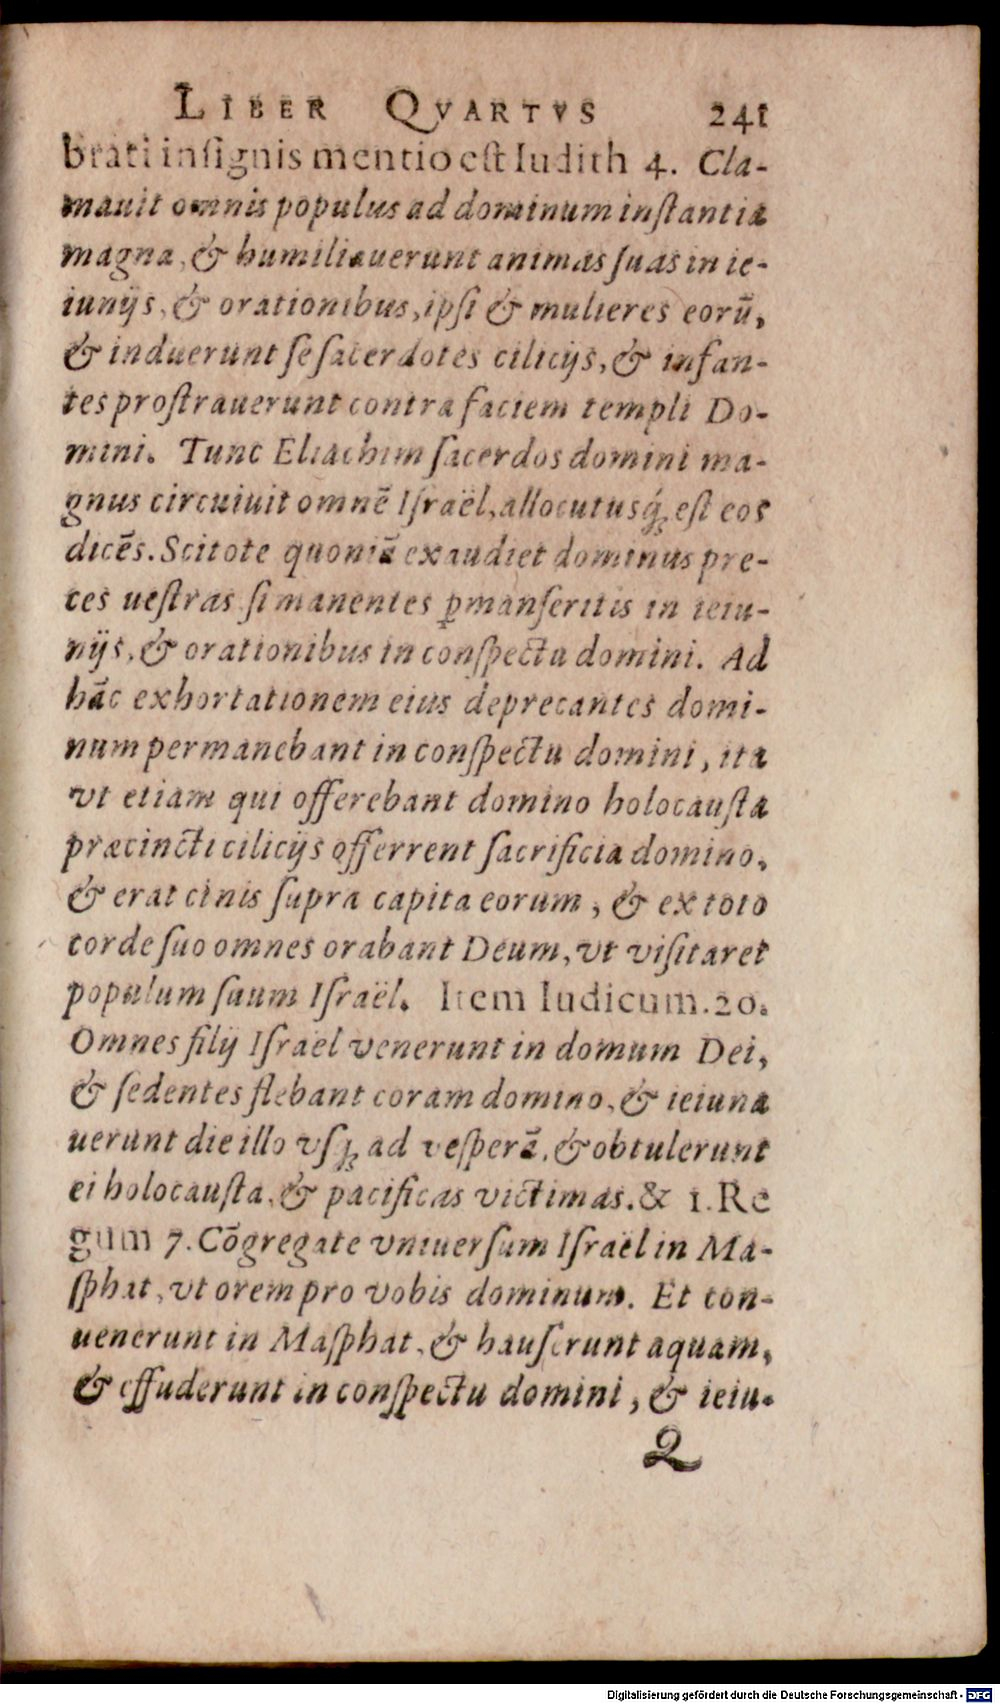 LIBER QVARTVS 241
brati insignis mentio est Iudith 4. Cla-
mauit omnis populus ad dominum inſtantia
magna, & humiliauerunt animas ſuas in ie-
iunijs, & orationibus, ipſi & mulieres eorū,
& induerunt ſe ſacerdotes cilicijs, & infan-
tes proſtrauerunt contra faciem templi Do-
mini. Tunc Eliachim ſacerdos domini ma-
gnus circuiuit omnē Iſraël, allocutusq́ꝫ eſt eos
dicēs. Scitote quoniā exaudiet dominus pre-
ces ueſtras ſi manentes ꝑmanſeritis in ieiu-
nijs, & orationibus in conſpectu domini. Ad
hāc exhortationem eius deprecantes domi-
num permanebant in conſpectu domini, ita
vt etiam qui offerebant domino holocauſta
præcincti cilicijs offerrent ſacrificia domino,
& erat cinis ſupra capita eorum, & ex toto
corde ſuo omnes orabant Deum, vt viſitaret
populum ſuum Iſraël. Item Iudicum. 20.
Omnes filij Iſraël venerunt in domum Dei,
& ſedentes flebant coram domino, & ieiuna
uerunt die illo vſqꝫ ad veſperā, & obtulerunt
ei holocauſta, & pacificas victimas. & 1. Re
gum 7. Cōgregate vniuerſum Iſraël in Ma-
ſphat, vt orem pro vobis dominum. Et con-
uenerunt in Maſphat, & hauſerunt aquam,
& effuderunt in conſpectu domini, & ieiu-
Q
Digitalisierung gefördert durch die Deutsche Forschungsgemeinschaft - DFG